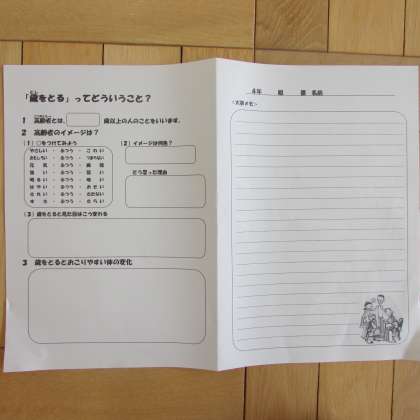 「歳をとる」ってどういうこと？
1 高齢者とは、 歳以上の人のことをいいます。
2 高齢者のイメージは？
（1）○をつけてみよう
やさしい ・ ふつう ・ こわい
おもしろい ・ ふつう ・ つまらない
元気 ・ ふつう ・ 病弱
強い ・ ふつう ・ 弱い
明るい ・ ふつう ・ 暗い
はやい ・ ふつう ・ おそい
きれい ・ ふつう ・ きたない
すき ・ ふつう ・ きらい
（2）イメージは何色？
どう思った理由
（3）歳をとると見た目はこう変わる
3 歳をとるとおこりやすい体の変化
4年 組 番 名前